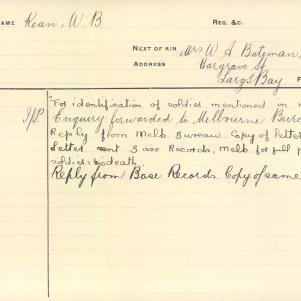 NAME Kean, W. B. REG. &C.
NEXT OF KIN Mrs W A Bateman,
ADDRESS Hargrave St
Largs Bay F
I/P. "For identification of soldier mentioned in
Enquiry forwarded to Melbourne Bure
Reply from Melb. Bureau. Copy of letter
Letter sent Base Records, Melb. for full p
soldier's death
Reply from Base Records. Copy of same